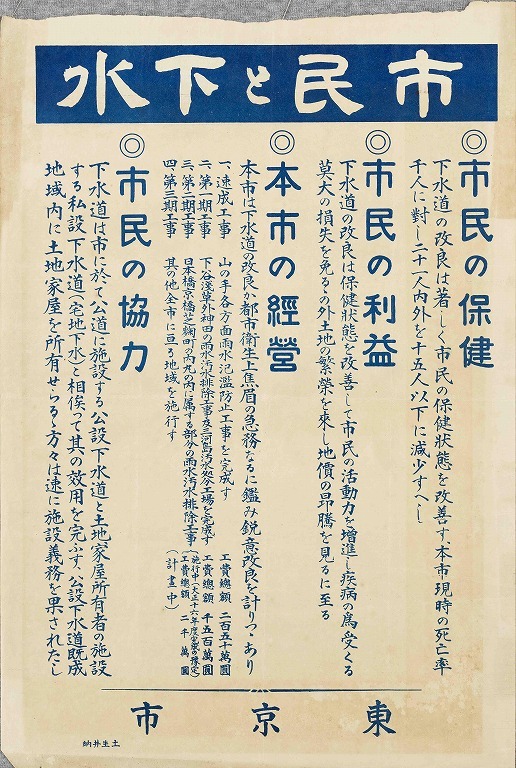 市民と下水
◎市民の保健
下水道の改良は著しく市民の保健状態を改善す、本市現時の死亡率
千人に對し二十一人內外を十五人以下に減少すへし
◎市民の利益
下水道の改良は保健狀態を改善して市民の活動力を增進し疾病の爲受くる
莫大の損失を免るゝ外土地の繁榮を來し地價の昻騰を見るに至る
◎本市の經營
本市は下水道の改良か都市衛生上焦眉の急務なるに鑑み銳意改良を計りつゝあり
一、速成工事 山の手各方面雨水氾濫防止工事を完成す 工費總額 二百五十萬圓
二、第一期工事 下谷淺草外神田の雨水汚水排除工事及三河島汚水處分工場を完成す 工費總額 千五百萬圓
三、第二期工事 日本橋京橋芝麴町の內丸の內に属する部分の雨水汚水排除工事 (施行中(大正十六年度完成の豫定) 工費總額 二千萬圓)
四、第三期工事 其の他全市に亘る地域を施行す (計畫中)
◎市民の協力
下水道は市に於て公道に施設する公設下水道と土地家屋所有者の施設
する私設下水道(宅地下水)と相俟って其の效用を完ふす、公設下水道旣成
地域內に土地家屋を所有せらるゝ方々は速に施設義務を果されたし
東京市
土生井納